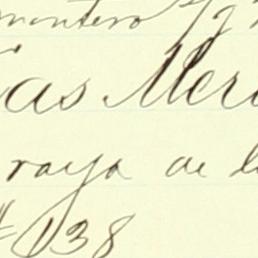 montero y
cas Mer
raya de l
# 138